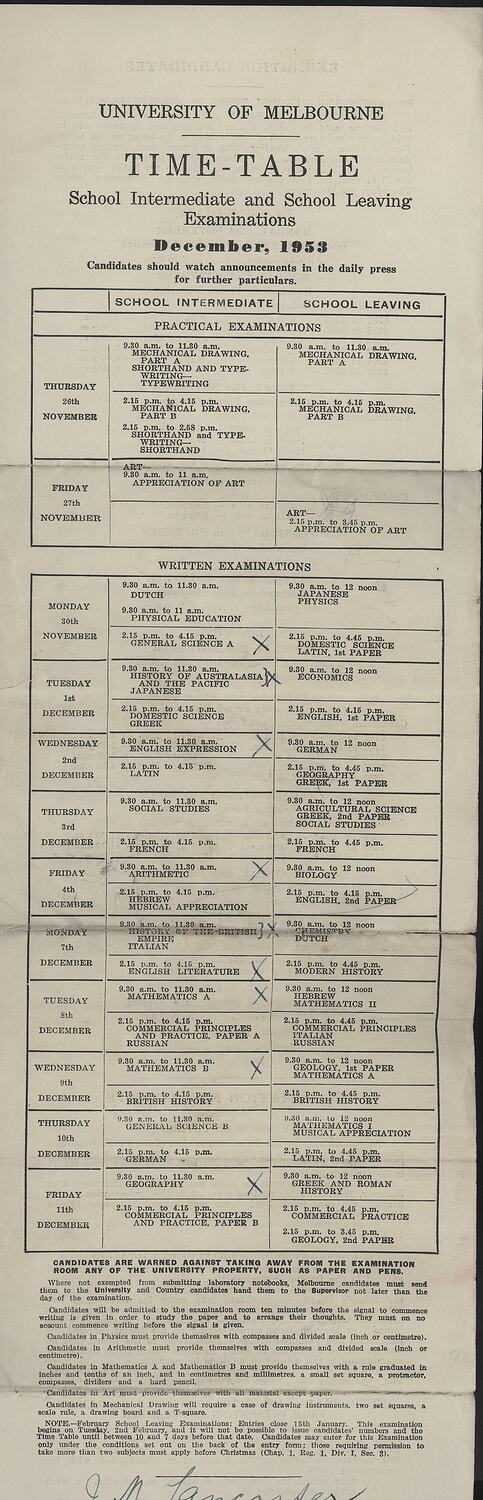 UNIVERSITY OF MELBOURNE
TIME-TABLE
School Intermediate and School Leaving
Examinations
December, 1953
Candidates should watch announcements in the daily press
for further particulars.
SCHOOL INTERMEDIATE
SCHOOL LEAVING
PRACTICAL EXAMINATIONS
THURSDAY
26th
NOVEMBER
9.30 a.m. to 11.30 a.m.
MECHANICAL DRAWING,
PART A
SHORTHAND AND TYPE-
WRITING—
TYPEWRITING
9.30 a.m. to 11.30 a.m.
MECHANICAL DRAWING,
PART A
2.15 p.m. to 4.15 p.m.
MECHANICAL DRAWING,
PART B
2.15 p.m. to 2.58 p.m.
SHORTHAND and TYPE-
WRITING—
SHORTHAND
2.15 p.m. to 4.15 p.m.
MECHANICAL DRAWING,
PART B
FRIDAY
27th
NOVEMBER
ART—
9.30 a.m. to 11 a.m.
APPRECIATION OF ART
ART—
2.15 p.m. to 3.45 p.m.
APPRECIATION OF ART
WRITTEN EXAMINATIONS
MONDAY
30th
NOVEMBER
9.30 a.m. to 11.30 a.m.
DUTCH
9.30 a.m. to 11 a.m.
PHYSICAL EDUCATION
9.30 a.m. to 12 noon
JAPANESE
PHYSICS
2.15 p.m. to 4.15 p.m.
GENERAL SCIENCE A X
2.15 p.m. to 4.45 p.m.
DOMESTIC SCIENCE
LATIN, 1st PAPER
TUESDAY
1st
DECEMBER
9.30 a.m. to 11.30 a.m.
HISTORY OF AUSTRALASIA } X
AND THE PACIFIC
JAPANESE
9.30 a.m. to 12 noon
ECONOMICS
2.15 p.m. to 4.15 p.m.
DOMESTIC SCIENCE
GREEK
2.15 p.m. to 4.15 p.m.
ENGLISH, 1st PAPER
WEDNESDAY
2nd
DECEMBER
9.30 a.m. to 11.30 a.m.
ENGLISH EXPRESSION X
9.30 a.m. to 12 noon
GERMAN
2.15 p.m. to 4.15 p.m.
LATIN
2.15 p.m. to 4.45 p.m.
GEOGRAPHY
GREEK, 1st PAPER
THURSDAY
3rd
DECEMBER
9.30 a.m. to 11.30 a.m.
SOCIAL STUDIES
9.30 a.m. to 12 noon
AGRICULTURAL SCIENCE
GREEK, 2nd PAPER
SOCIAL STUDIES
2.15 p.m. to 4.15 p.m.
FRENCH
2.15 p.m. to 4.45 p.m.
FRENCH
FRIDAY
4th
DECEMBER
9.30 a.m. to 11.30 a.m.
ARITHMETIC X
9.30 a.m. to 12 noon
BIOLOGY
2.15 p.m. to 4.15 p.m.
HEBREW
MUSICAL APPRECIATION
2.15 p.m. to 4.15 p.m.
ENGLISH, 2nd PAPER
MONDAY
7th
DECEMBER
9.30 a.m. to 11.30 a.m.
HISTORY OF THE BRITISH } X
EMPIRE
ITALIAN
9.30 a.m. to 12 noon
CHEMISTRY
DUTCH
2.15 p.m. to 4.15 p.m.
ENGLISH LITERATURE X
2.15 p.m. to 4.45 p.m.
MODERN HISTORY
TUESDAY
8th
DECEMBER
9.30 a.m. to 11.30 a.m.
MATHEMATICS A X
9.30 a.m. to 12 noon
HEBREW
MATHEMATICS II
2.15 p.m. to 4.15 p.m.
COMMERCIAL PRINCIPLES
AND PRACTICE, PAPER A
RUSSIAN
2.15 p.m. to 4.45 p.m.
COMMERCIAL PRINCIPLES
ITALIAN
RUSSIAN
WEDNESDAY
9th
DECEMBER
9.30 a.m. to 11.30 a.m.
MATHEMATICS B X
9.30 a.m. to 12 noon
GEOLOGY, 1st PAPER
MATHEMATICS A
2.15 p.m. to 4.15 p.m.
BRITISH HISTORY
2.15 p.m. to 4.45 p.m.
BRITISH HISTORY
THURSDAY
10th
DECEMBER
9.30 a.m. to 11.30 a.m.
GENERAL SCIENCE B
9.30 a.m. to 12 noon
MATHEMATICS I
MUSICAL APPRECIATION
2.15 p.m. to 4.15 p.m.
GERMAN
2.15 p.m. to 4.45 p.m.
LATIN, 2nd PAPER
FRIDAY
11th
DECEMBER
9.30 a.m. to 11.30 a.m.
GEOGRAPHY X
9.30 a.m. to 12 noon
GREEK AND ROMAN
HISTORY
2.15 p.m. to 4.15 p.m.
COMMERCIAL PRINCIPLES
AND PRACTICE, PAPER B
2.15 p.m. to 4.45 p.m.
COMMERCIAL PRACTICE
2.15 p.m. to 3.45 p.m.
GEOLOGY, 2nd PAPER
CANDIDATES ARE WARNED AGAINST TAKING AWAY FROM THE EXAMINATION
ROOM ANY OF THE UNIVERSITY PROPERTY, SUCH AS PAPER AND PENS.
Where not exempted from submitting laboratory notebooks, Melbourne candidates must send
them to the University and Country candidates hand them to the Supervisor not later than the
day of the examination.
Candidates will be admitted to the examination room ten minutes before the signal to commence
writing is given in order to study the paper and to arrange their thoughts. They must on no
account commence writing before the signal is given.
Candidates in Physics must provide themselves with compasses and divided scale (inch or centimetre).
Candidates in Arithmetic must provide themselves with compasses and divided scale (inch or
centimetre).
Candidates in Mathematics A and Mathematics B must provide themselves with a rule graduated in
inches and tenths of an inch, and in centimetres and millimetres, a small set square, a protractor,
compasses, dividers and a hard pencil.
Candidates in Art must provide themselves with all material except paper.
Candidates in Mechanical Drawing will require a case of drawing instruments, two set squares, a
scale rule, a drawing board and a T-square.
NOTE.—February School Leaving Examinations: Entries close 15th January. This examination
begins on Tuesday, 2nd February, and it will not be possible to issue candidates' numbers and the
Time Table until between 10 and 7 days before that date. Candidates may enter for this Examination
only under the conditions set out on the back of the entry form; those requiring permission to
take more than two subjects must apply before Christmas (Chap. 1, Reg. 1, Div. I, Sec. 3).
J M Lancaster